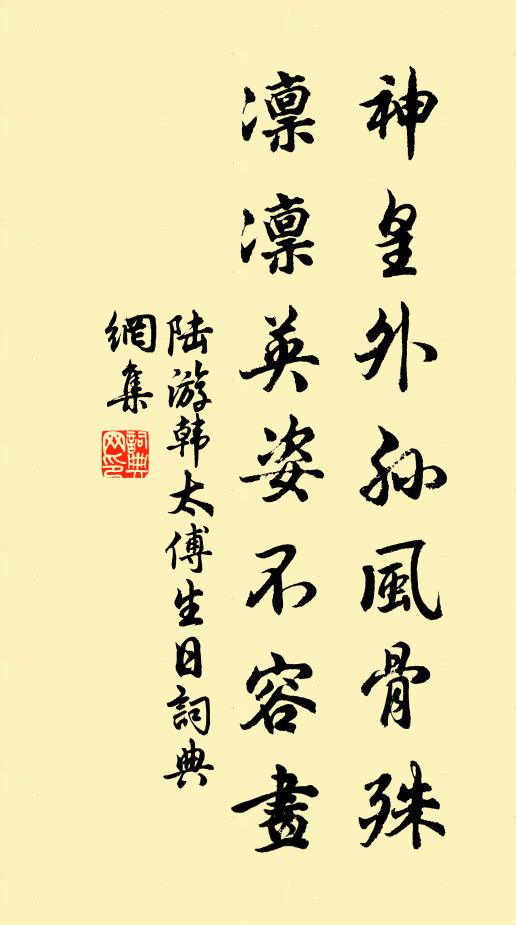 神皇外孙風骨殊
凛凛英姿不容畫
陆游韩太傅生日詞典
網集
詞典网印